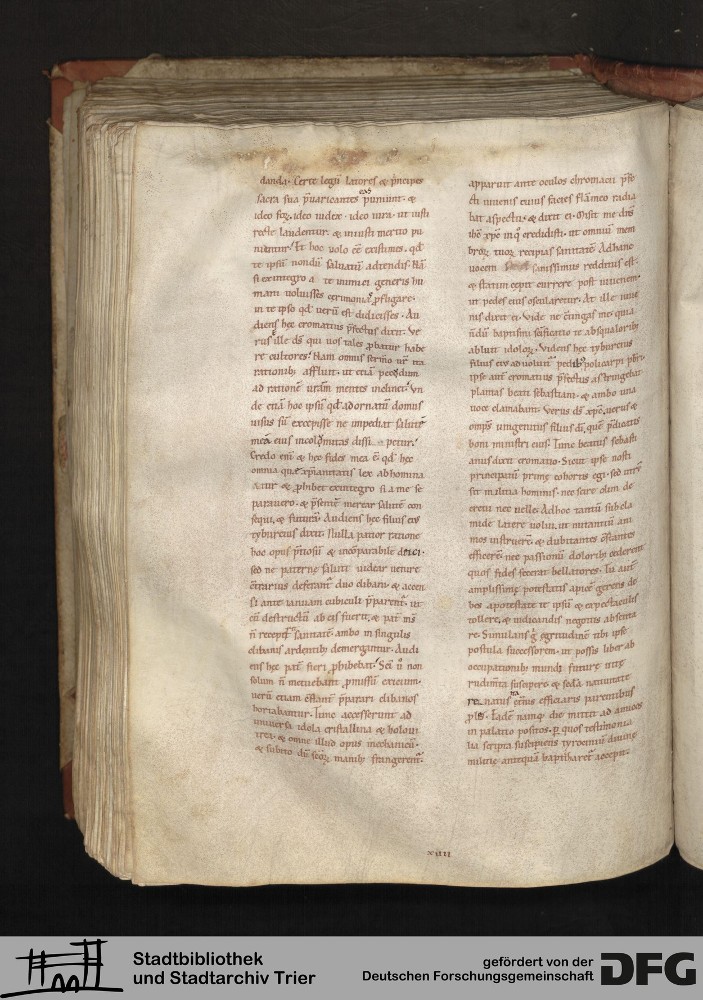 danda. Certe legū latores & p̄ncipes
sacra sua p̄uaricantes puniunt. &
ideo iudex. ideo iura. ut iusti
recte laudentur. & iniusti merito pu
niantur. Et hoc uolo te existimes. qd
te ipsū nondū saluatū adtendis. Nā
si ex integro a te inimici generis hu
mani uoluisses cerimonia ꝓfligare.
in te ipso qd uerū est didicisses. Au
diens hec cromatius p̄fectus dixit. Ve
rus ille ds̄ qui uos tales ꝓbatur habe
re cultores. Nam omnis sermo ur̄ ita
rationib; affluit. ut etiā
ad rationē ur̄am mentes inclinet. Vn
de etiā hoc ipsū qd adornatū domus
uisus sū excepisse ne impediat
mea eius incolomitas
Credo eni & hec fides mea ē qd hec
omnia que xpianitatis lex abhomina
tur & ꝓhibet ex integro si a me se
parauero. & p̄sentē merear salutē con
sequi. & futurā. Audiens hec filius eius
tyburcius dixit. Nulla patior ratione
hoc opus p̄tiosū & incōparabile
sed ne paterne saluti uidear uenire
cōtrarius deferant duo clibani. & accen
si ante ianuam cubiculi p̄parent. ut
cū destructū ab eis fuerit. & pat̄ ms̄
n̄ sanitatē. ambo in singulis
clibanis ardentib; demergantur. Audi
ens hec pat̄ fieri ꝓhibebat. Sed non
solum n̄ metuebant ꝓmissū exitium.
uerū etiam p̄parari clibanos
hortabantur. Tunc accesserunt ad
uniuersa idola cristallina & holoui
trea. & omne illud opus mechanicū.
& subito dū manib; frangerent.
apparuit ante oculos chromacii p̄fec
ti iuuenis cuius facies flāmeo radia
bat aspectu. & dixit ei. Misit me dn̄s
ih̄c xp̄c in q̄ credidisti. ut omniū mem
broꝝ tuoꝝ recipias sanitatē. Ad hanc
uocem sanissimus redditus est.
& statim cepit currere post iuuenem.
ut pedes eius oscularetur. At ille iuue
nis dixit ei. Vide ne cōtingas me. quia
nōdū baptismi te ab squalorib;
abluit idoloꝝ. Videns hec tyburcius
filius eius aduoluit pedib; policarpi pbr̄i.
ipse autē cromatius p̄fectus astringebat
plantas beati sebastiani. & ambo una
uoce clamabant. Verus ds̄ xp̄c. uerus &
omps̄ unigenitus filius dī. quē p̄dicatis
boni ministri eius. Tunc beatus sebasti
anus dixit cromatio. Sicut ipse nosti
principatū prime cohortis egi. sed
sit militia hominis. nec scire olim de
creui nec uelle. Ad hoc tantū sub cla
mide latere uolui. ut nutantiū ani
mos instruerē. & dubitantes cōstantes
efficerē. nec passionū dolorib; cederent
quos fides fecerat bellatores. Tu autē
amplissime potestatis apicē gerens de
bes a potestate te ipsū & expectaculis
tollere. & iudicandis negotiis absenta
re. Simulans g̊ egritudinē tibi ipse
postula successorem. ut possis liber ab
occupationib; mundi future uite
rudimta suscipere. & scda natiuitate
renatus efficiaris parentibus
Eadē namq; die mittit ad amicos
in palatio positos. ꝑ quos testimonia
lia scripta suscipiens tyrociniū diuine
militie antequā baptizaret accepit.
xiiii
Stadtbibliothek
und Stadtarchiv Trier
gefördert von der
Deutschen Forschungsgemeinschaft
DFG